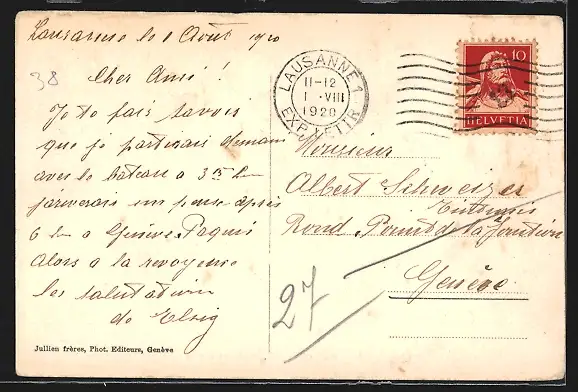 Lausanne le 1 Août 1920
38
Cher Ami !
Je te fais savoir
que je partirais demain
avec le bateau a 3 15 h
j'arriverais un peu après
6 h a Genève Paquis
Alors a la revoyure
les salutation
de Elsig
Jullien frères, Phot. Editeurs, Genève
LAUSANNE 1
11-12
1 · VIII
1920
EXP. LETTR.
10
HELVETIA
Monsieur
Albert Schweizer
Rond Point de la Jonction
Genève
27